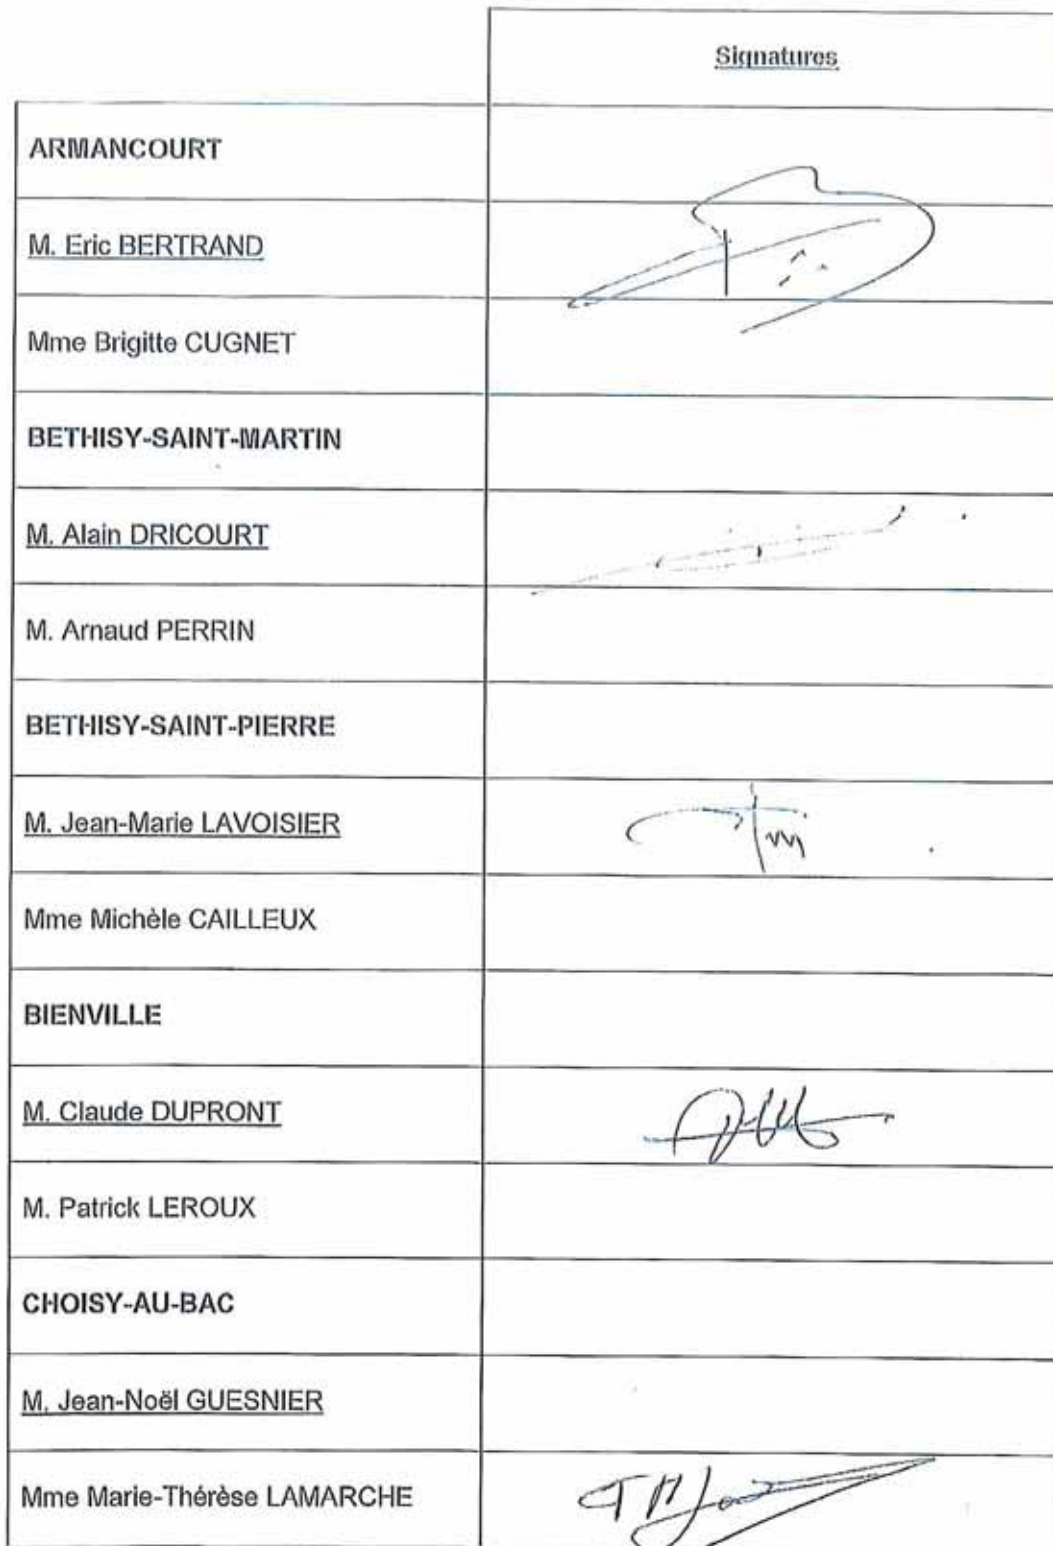 Signatures
ARMANCOURT
M. Eric BERTRAND
Mme Brigitte CUGNET
BETHISY-SAINT-MARTIN
M. Alain DRICOURT
M. Arnaud PERRIN
BETHISY-SAINT-PIERRE
M. Jean-Marie LAVOISIER
Mme Michèle CAILLEUX
BIENVILLE
M. Claude DUPRONT
M. Patrick LEROUX
CHOISY-AU-BAC
M. Jean-Noël GUESNIER
Mme Marie-Thérèse LAMARCHE